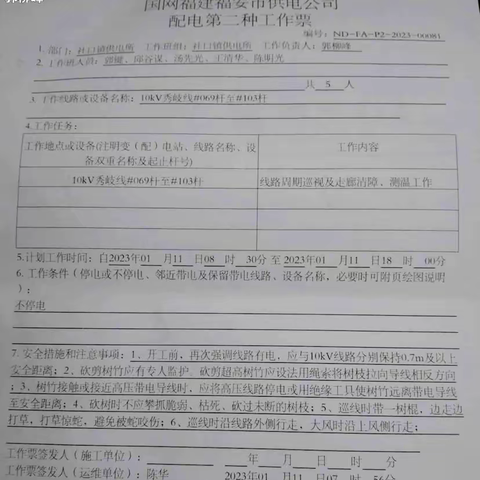 国网福建福安市供电公司
配电第二种工作票
编号: ND-FA-P2-2023-00081
1. 部门: 社口镇供电所 工作班组: 社口镇供电所 工作负责人: 郭柳峰
2. 工作班人员: 郭健、邱谷谋、汤先光、王清华、陈明光
共 5 人
3 工作线路或设备名称: 10kV秀岐线#069杆至#103杆
4.工作任务:
工作地点或设备(注明变(配)电站、线路名称、设备双重名称及起止杆号) 工作内容
10kV秀岐线#069杆至#103杆 线路周期巡视及走廊清障、测温工作
5.计划工作时间: 自2023年01 月11日08 时 30分 至 2023年01 月11日18 时 00分
6. 工作条件(停电或不停电、邻近带电及保留带电线路、设备名称,必要时可附页绘图说明
):
不停电
7. 安全措施和注意事项: 1、开工前,再次强调线路有电,应与10kV线路分别保持0.7m及以上
安全距离; 2、砍剪树竹应有专人监护。砍剪超高树竹应设法用绳索将树枝拉向导线相反方向
; 3、树竹接触或接近高压带电导线时,应将高压线路停电或用绝缘工具使树竹远离带电导线
至安全距离; 4、砍树时不应攀抓脆弱、枯死、砍过未断的树枝; 5、巡线时带一树棍,边走边
打草,打草惊蛇,避免被蛇咬伤; 6、巡线时沿线路外侧行走,大风时沿上风侧行走;
工作票签发人(施工单位): 年 月 日 时 分
工作票签发人(运维单位): 陈华 2023年 01 月11日07 时 56分